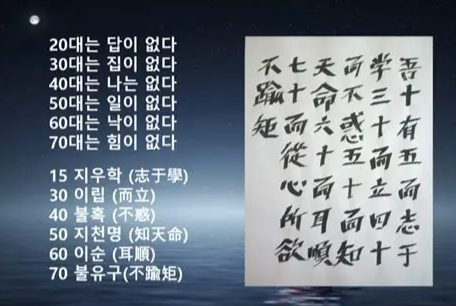 20대는 답이 없다
30대는 집이 없다
40대는 나는 없다
50대는 일이 없다
60대는 낙이 없다
70대는 힘이 없다
15 지우학 (志于學)
30 이립 (而立)
40 불혹 (不惑)
50 지천명 (知天命)
60 이순 (耳順)
70 불유구(不踰矩)
吾十有五而志于
学三十而立四十
而不惑五十而知
天命六十而耳順
七十而從心所欲
不踰矩